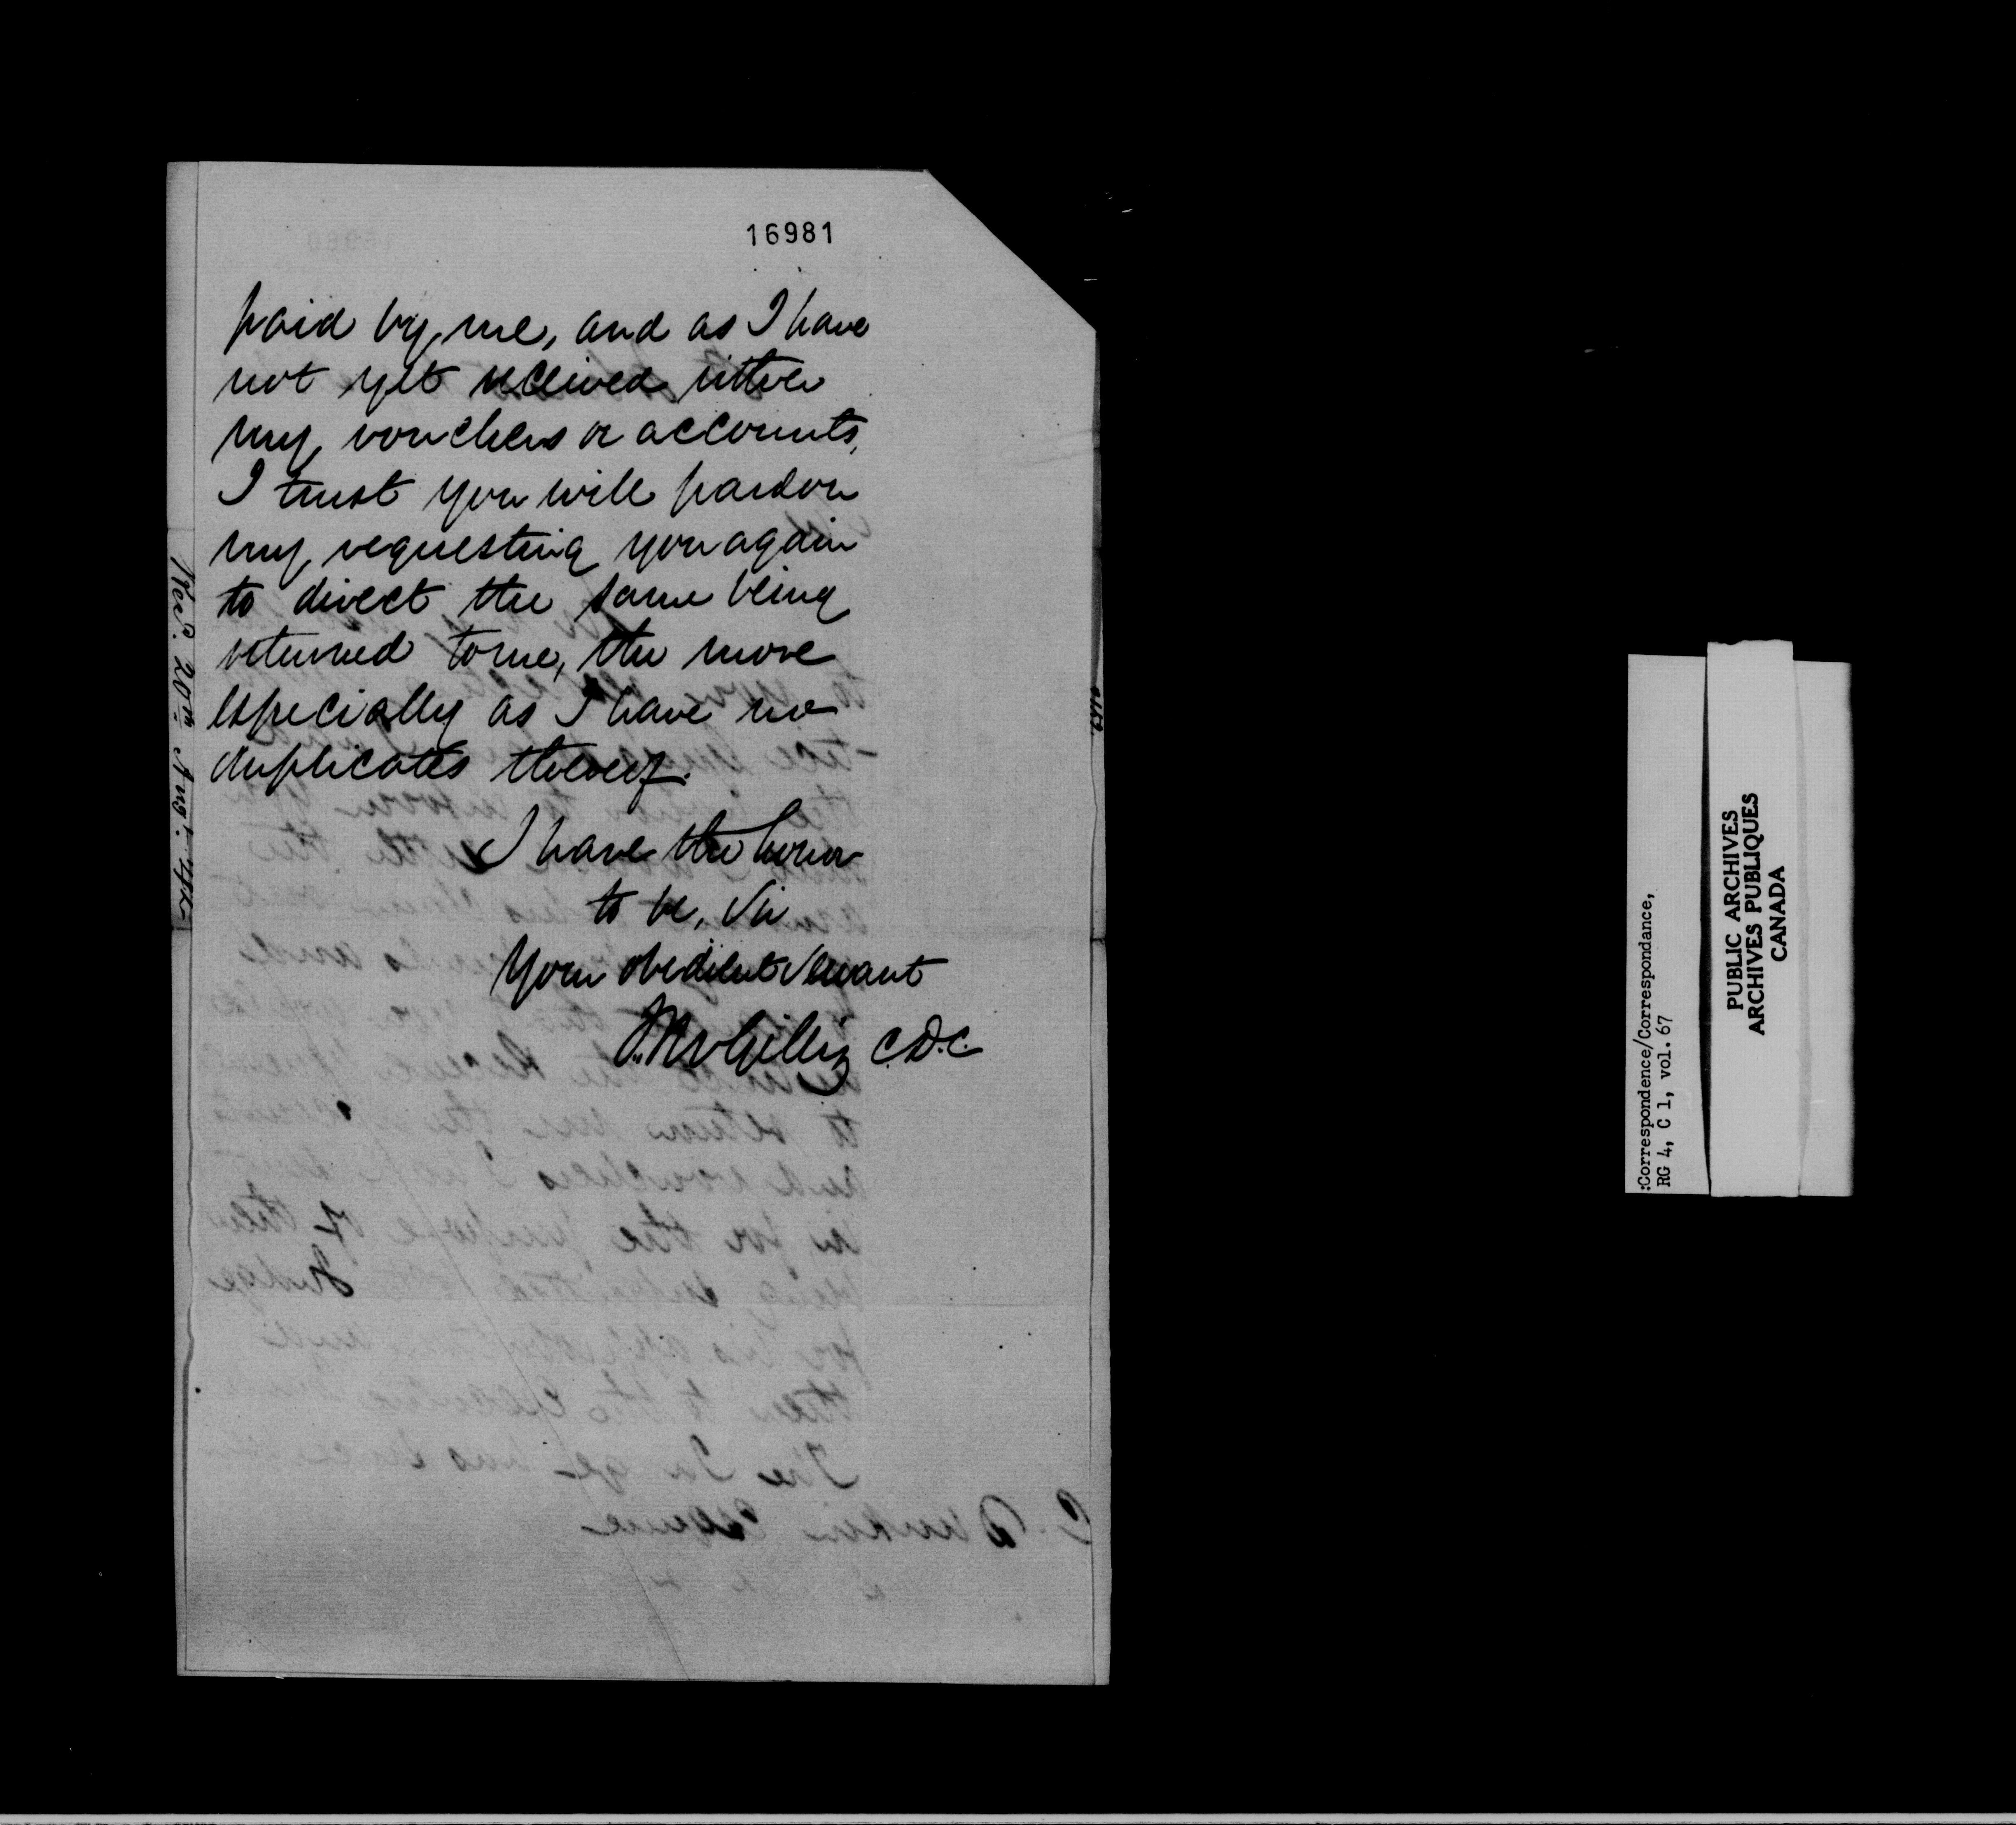 16981
paid by me, and as I have
not yet received either
my vouchers or accounts,
I trust you will pardon
my requesting you again
to direct the same being
returned to me, the more
especially as I have no
duplicates thereof.
I have the honor
to be, Sir
Your obedient Servant
McGillis C.D.C.
Rec.d 20th Augt.
:Correspondence/Correspondance,
RG 4, C 1, vol. 67
PUBLIC ARCHIVES
ARCHIVES PUBLIQUES
CANADA